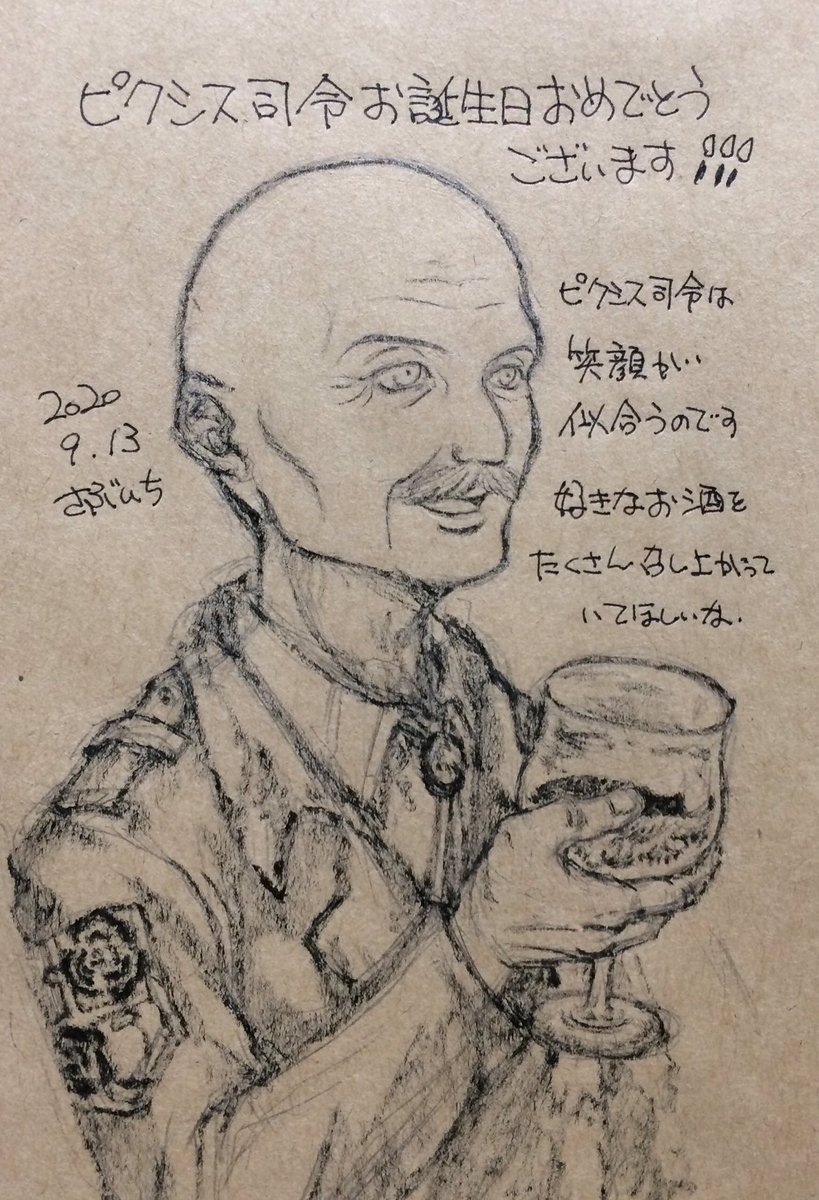 ピクシス司令お誕生日おめでとう
ございます!!!
ピクシス司令は
笑顔が
似合うのです
好きなお酒を
たくさん召し上がって
いてほしいな.
2020
9.13
さぶいち